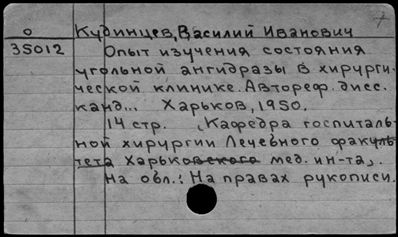 7
о Кудинцев, Василий Иванович
35012 Опыт изучения состояния
угольной ангидразы в хирурги-
ческой клинике. Автореф. дисс.
канд... Харьков, 1950.
14 стр. (Кафедра госпиталь-
ной хирургии Лечебного факуль-
тета Харьковского мед. ин-та).
На обл.: На правах рукописи.